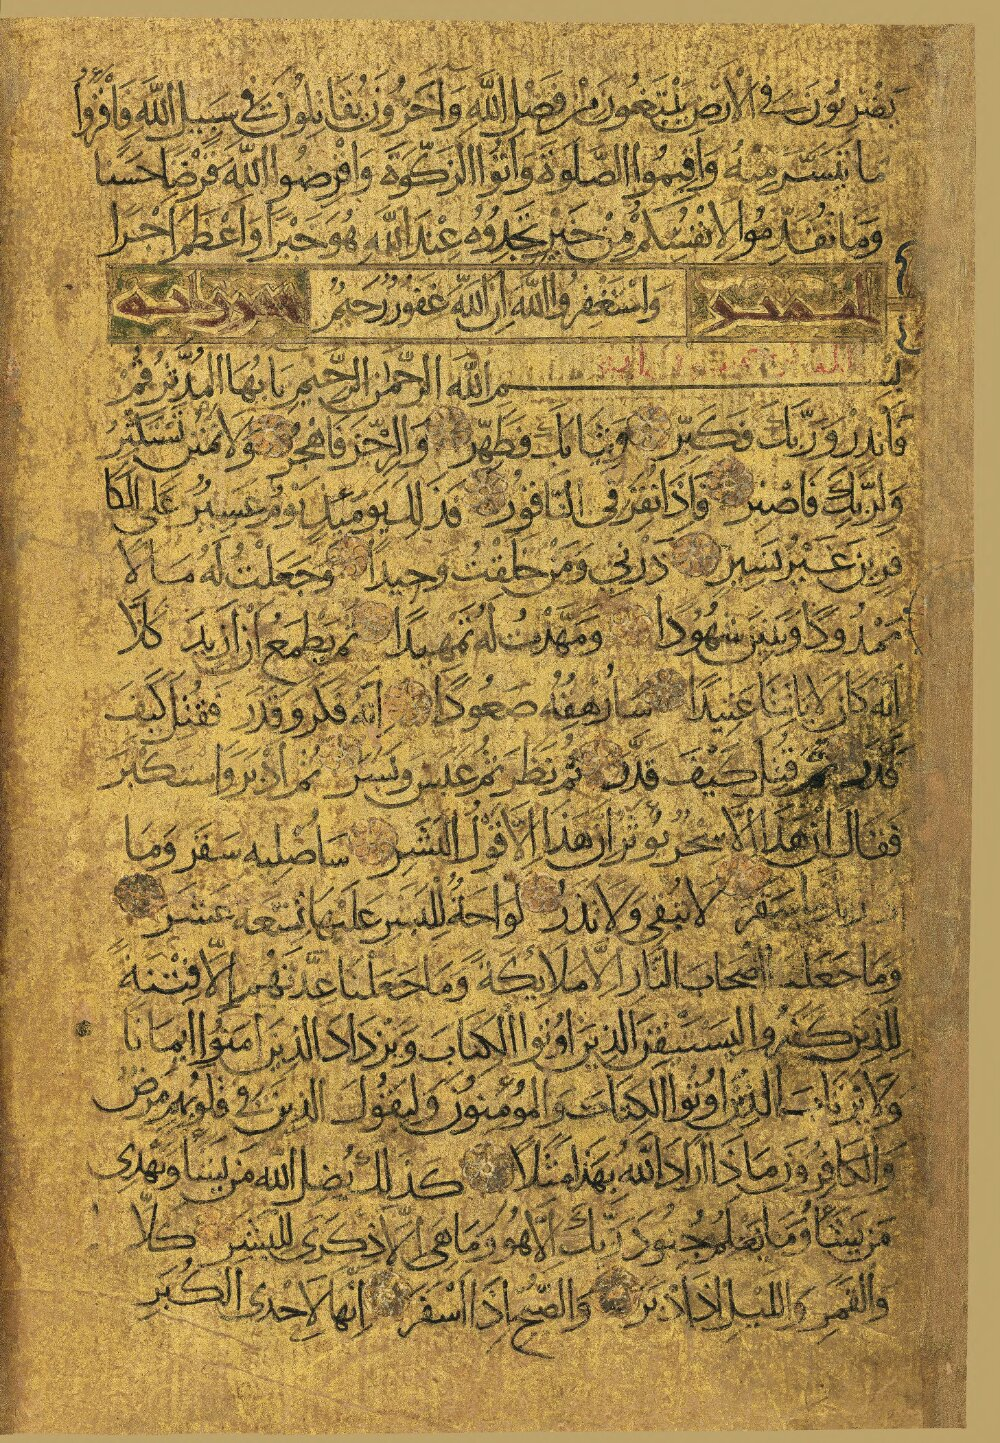 يضربون في الارض يبتغون من فضل الله واخرون يقاتلون في سبيل الله فاقروا
ما تيسر منه واقيموا الصلوة واتوا الزكوة واقرضوا الله قرضا حسنا
وما تقدموا لانفسكم من خير تجدوه عند الله هو خيرا واعظم اجرا
واستغفروا الله ان الله غفور رحيم
بسم الله الرحمن الرحيم يايها المدثر قم
فانذر وربك فكبر وثيابك فطهر والرجز فاهجر ولا تمنن تستكثر
ولربك فاصبر فاذا نقر في الناقور فذلك يومئذ يوم عسير على الكا
فرين غير يسير ذرني ومن خلقت وحيدا وجعلت له مالا
ممدودا وبنين شهودا ومهدت له تمهيدا ثم يطمع ان ازيد كلا
انه كان لاياتنا عنيدا سارهقه صعودا انه فكر وقدر فقتل كيف
قدر ثم قتل كيف قدر ثم نظر ثم عبس وبسر ثم ادبر واستكبر
فقال ان هذا الا سحر يوثر ان هذا الا قول البشر ساصليه سقر وما
سقر لا تبقي ولا تذر لواحة للبشر عليها تسعة عشر
وما جعلنا اصحاب النار الا ملايكة وما جعلنا عدتهم الا فتنة
للذين كفروا ليستيقن الذين اوتوا الكتاب ويزداد الذين امنوا ايمانا
ولا يرتاب الذين اوتوا الكتاب والمومنون وليقول الذين في قلوبهم مرض
والكافرون ماذا اراد الله بهذا مثلا كذلك يضل الله من يشا ويهدي
من يشا وما يعلم جنود ربك الا هو وما هي الا ذكرى للبشر كلا
والقمر والليل اذ ادبر والصبح اذا اسفر انها لاحدى الكبر